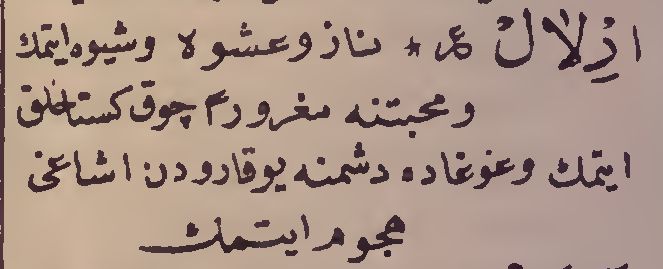 ادِلال ع * ناز و عشوه و شیوه ایتمك
و محبتنه مغرورا چوق کستاخلق
ایتمك و غوغاده دشمنه یوقارودن اشاغی
هجوم ایتمك